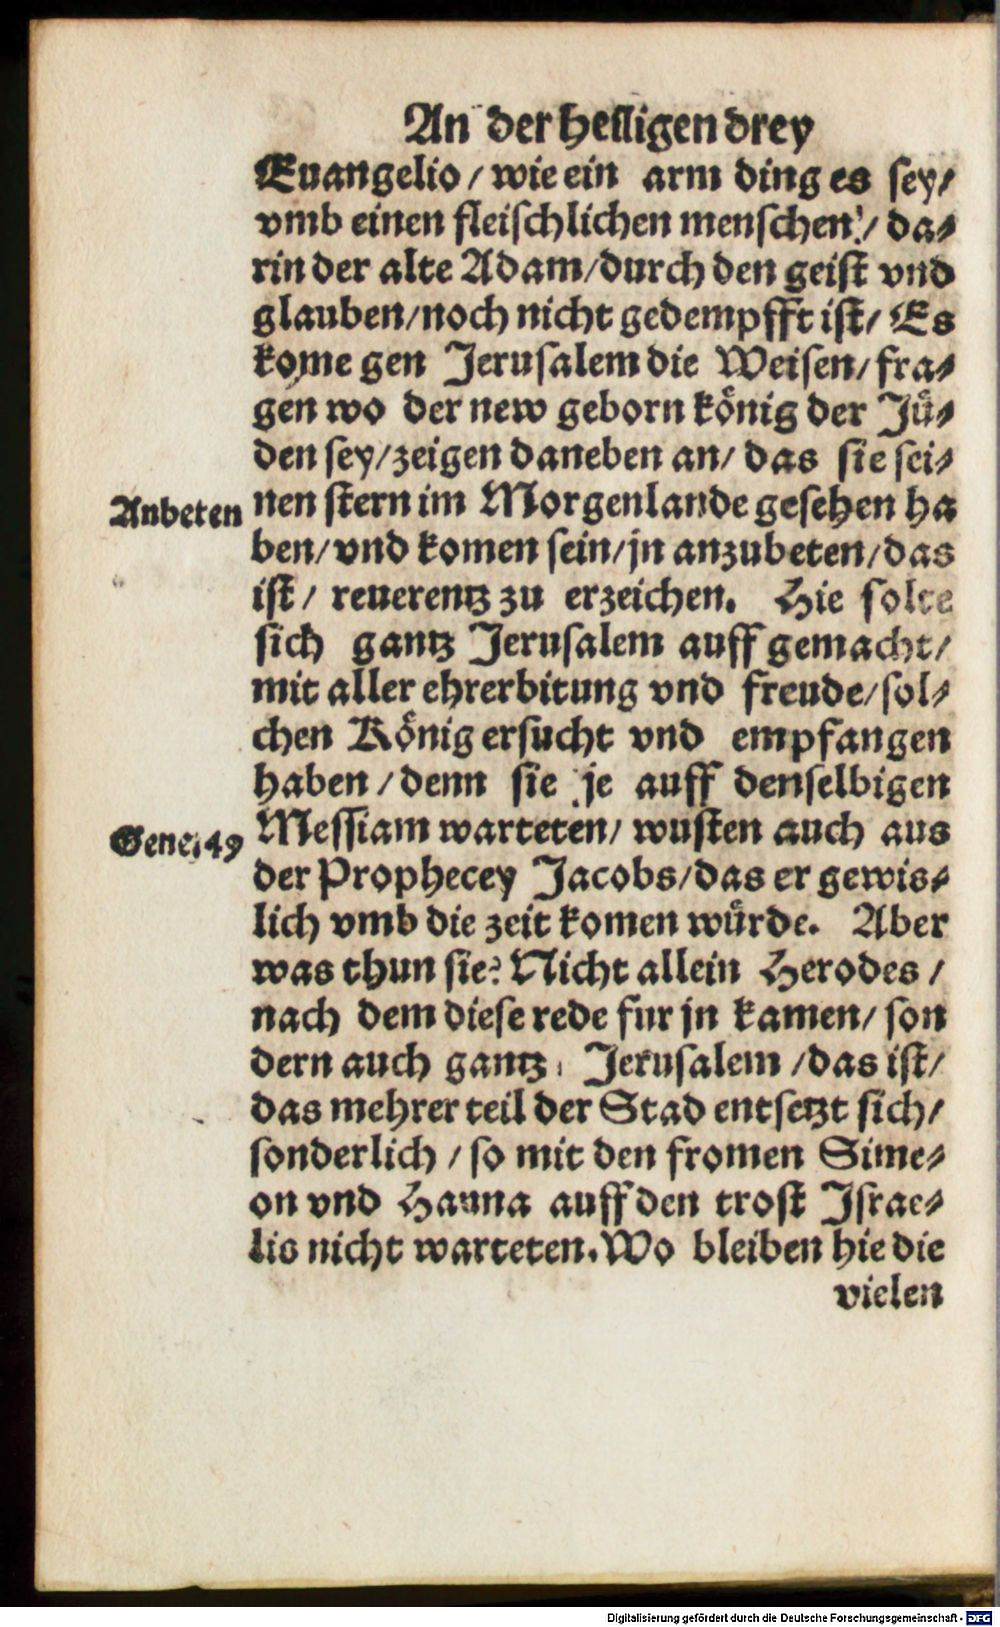 An der heiligen drey
Euangelio / wie ein arm ding es sey /
vmb einen fleischlichen menschen / da⸗
rin der alte Adam / durch den geist vnd
glauben / noch nicht gedempfft ist / Es
kome gen Jerusalem die Weisen / fra⸗
gen wo der new geborn könig der Jü⸗
den sey / zeigen daneben an / das sie sei⸗
Anbeten
nen stern im Morgenlande gesehen ha
ben / vnd komen sein / jn anzubeten / das
ist / reuerentz zu erzeichen. Hie solte
sich gantz Jerusalem auff gemacht /
mit aller ehrerbitung vnd freude / sol⸗
chen König ersucht vnd empfangen
haben / denn sie je auff denselbigen
Gene. 49
Messiam warteten / wusten auch aus
der Prophecey Jacobs / das er gewis⸗
lich vmb die zeit komen würde. Aber
was thun sie? Nicht allein Herodes /
nach dem diese rede fur jn kamen / son
dern auch gantz Jerusalem / das ist /
das mehrer teil der Stad entsetzt sich /
sonderlich / so mit den fromen Sime⸗
on vnd Hanna auff den trost Israe⸗
lis nicht warteten. Wo bleiben hie die
vielen
Digitalisierung gefördert durch die Deutsche Forschungsgemeinschaft - DFG